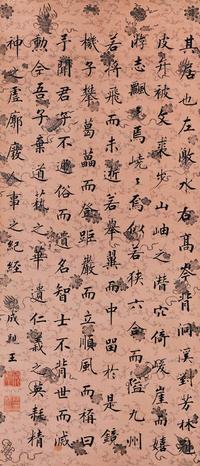 其居也左激水右高岑背洞溪對芳林冠
皮弁被文裘出山岫之潛穴倚峻崖而嬉
遊志飄颻焉嶢嶢焉似若狹六合而隘九州
若將飛而未逝若舉翼而中留於是鏡
機子攀葛藟而登距巖而立順風而稱曰
予聞君子不遯俗而遺名智士不背世而滅
勳今吾子棄道藝之華遺仁義之英耗精
神乎虛廓廢人事之紀經 成親王